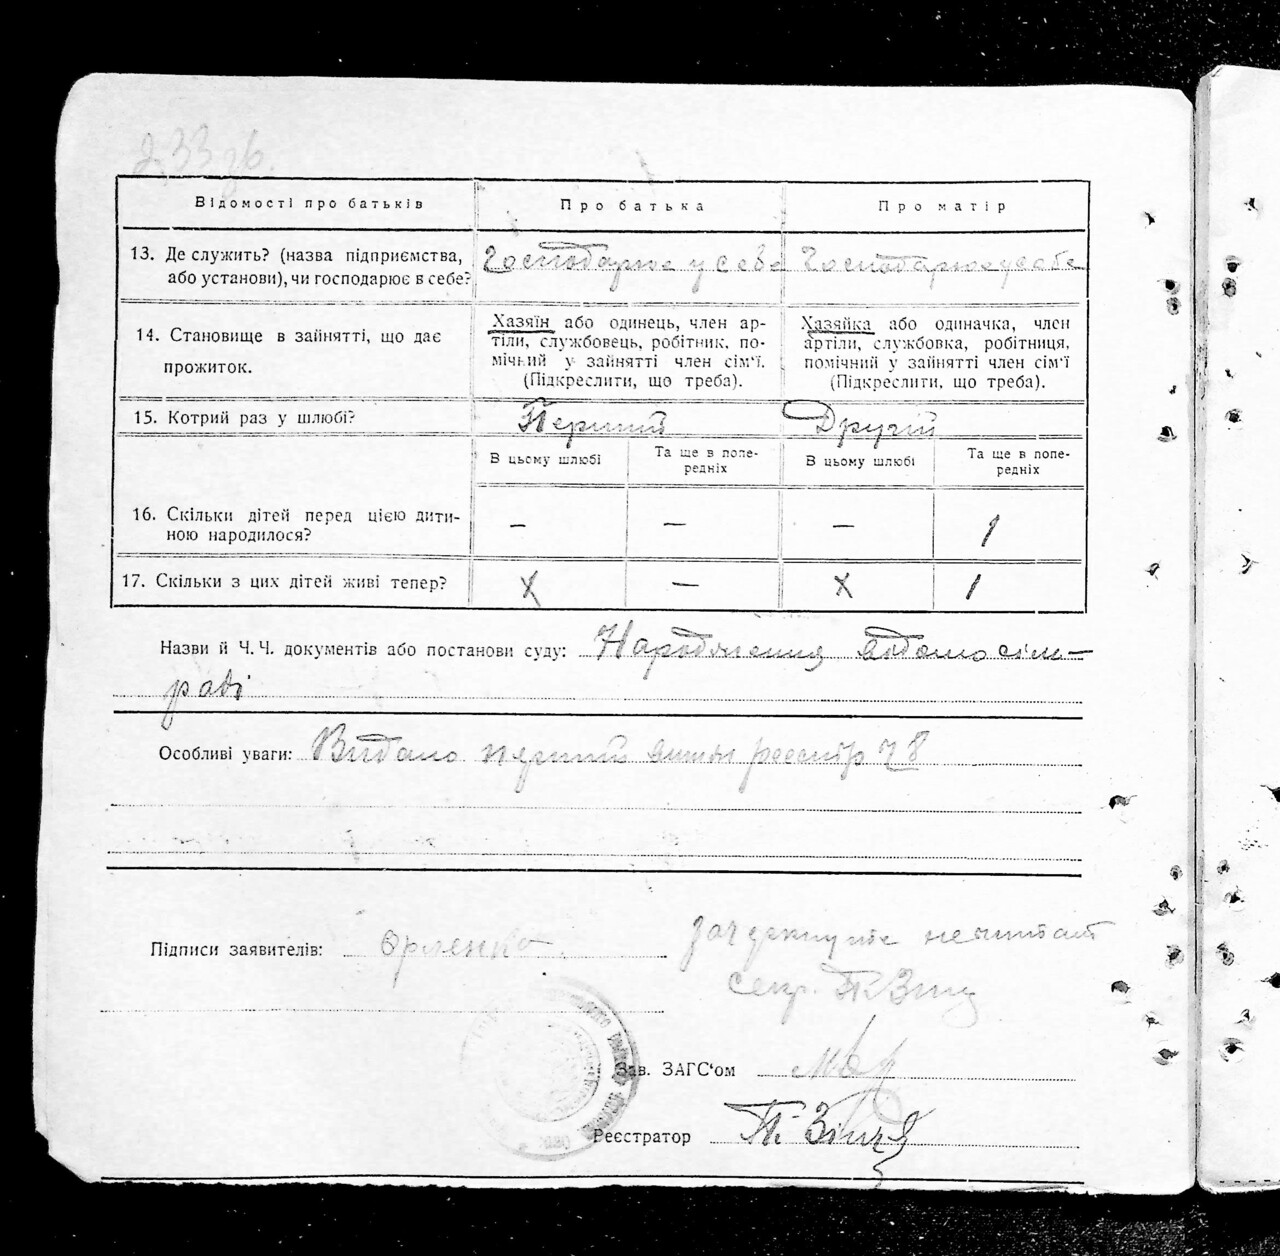 Відомості про батьків Про батька Про матір
13. Де служить? (назва підприємства, або установи), чи господарює в себе?
Господарює у себе Господарює у себе
14. Становище в зайнятті, що дає прожиток.
Хазяїн або одинець, член ар-
тілі, службовець, робітник, по-
мічний у зайнятті член сім'ї.
(Підкреслити, що треба).
Хазяйка або одиначка, член
артілі, службовка, робітниця,
помічний у зайнятті член сім'ї
(Підкреслити, що треба).
15. Котрий раз у шлюбі? Перший Другий
В цьому шлюбі Та ще в попе-
редніх В цьому шлюбі Та ще в попе-
редніх
16. Скільки дітей перед цією дити-
ною народилося? — — — 1
17. Скільки з цих дітей живі тепер? X — X 1
Назви й Ч. Ч. документів або постанови суду: Народження відомо сіль-
раді
Особливі уваги: Видано перший реєстр 8
Підписи заявителів: Орленко
секр. П. Зінц
Зав. ЗАГС'ом
Реєстратор П.